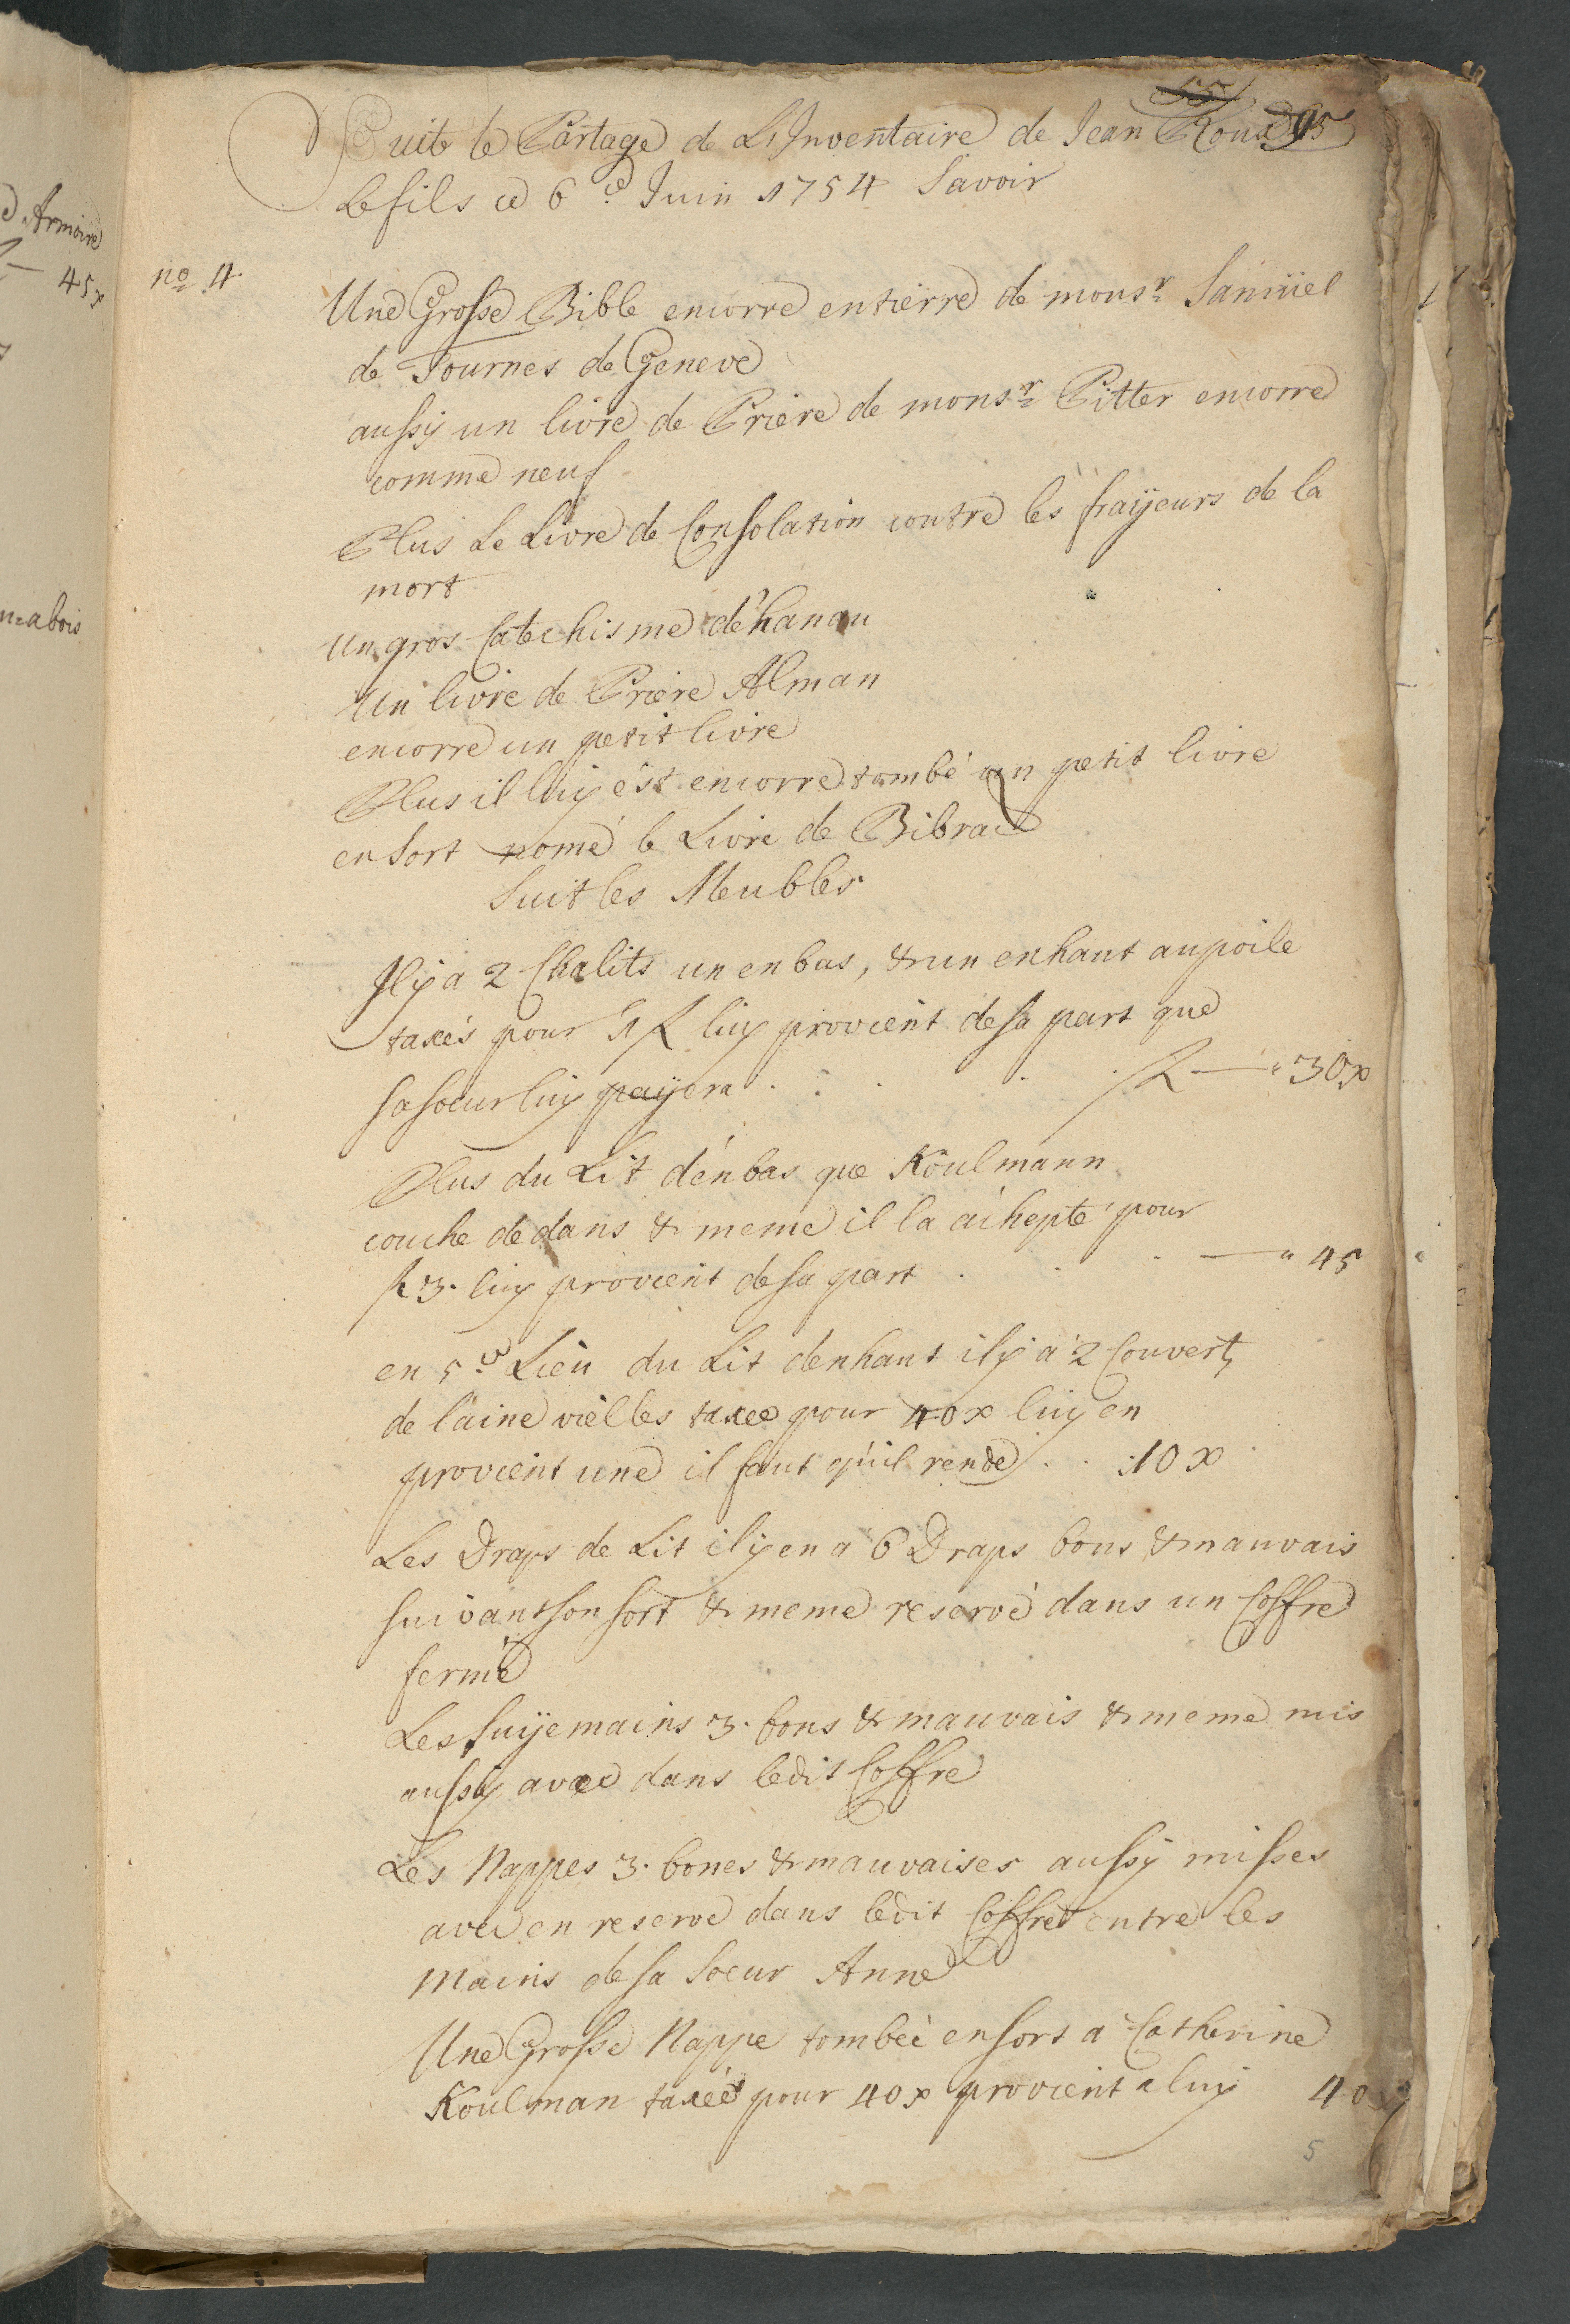 55
Suit le Partage de L'Inventaire de Jean Roux 95
Le fils ce 6.e Juin 1754 Savoir
no 4
Une Grosse Bible encorre entierre de monsr Samüel
de Tournes de Geneve
aussy un livre de Priere de monsr Pitter encorre
comme neuf
Plus Le Livre de Consolation contre les fraÿeurs de la
mort
un gros Catechisme d'hanau
un livre de Priere Alman
encorre un petit livre
Plus il luy est encorre tombé un petit livre
en sort nomé le Livre de Bibrac
Suit les Meubles
Il y a 2 Chalits un en bas, & un enhaut au poile
taxés pour 1 f luy provient de sa part que
sa soeur luy payera . . . . f — " 30x
Plus du Lit d'enbas que Koulmann
couche dedans & meme il la achepté pour
f 3. luy provient de sa part . . . — " 45
en 5.e Lieu du Lit denhaut il y a 2 Couvert,
de laine vielles taxee pour 40x luy en
provient une il faut qu'il rende . . 10 x
Les Draps de Lit il y en a 6 Draps bons & mauvais
suivant son sort & meme reservé dans un Coffre
fermé
Les suÿemains 3. bons & mauvais & meme mis
aussy avec dans ledit Coffre
Les Nappes 3. bones & mauvaises aussy misses
avec en reserve dans ledit Coffre entre les
mains de sa Soeur Anne
Une Grosse Nappe tombée en sort a Catherine
Koulman taxée pour 40x provient a luy 40x
5
d'Armoire
— 45x
a bois